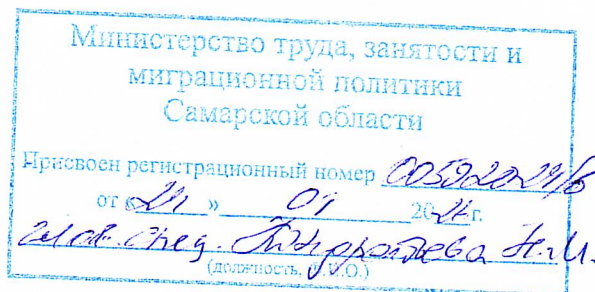 Министерство труда, занятости и
миграционной политики
Самарской области
Присвоен регистрационный номер
от « » 01 20 г.
глав. спец. Н.И.
(должность, Ф.И.О.)